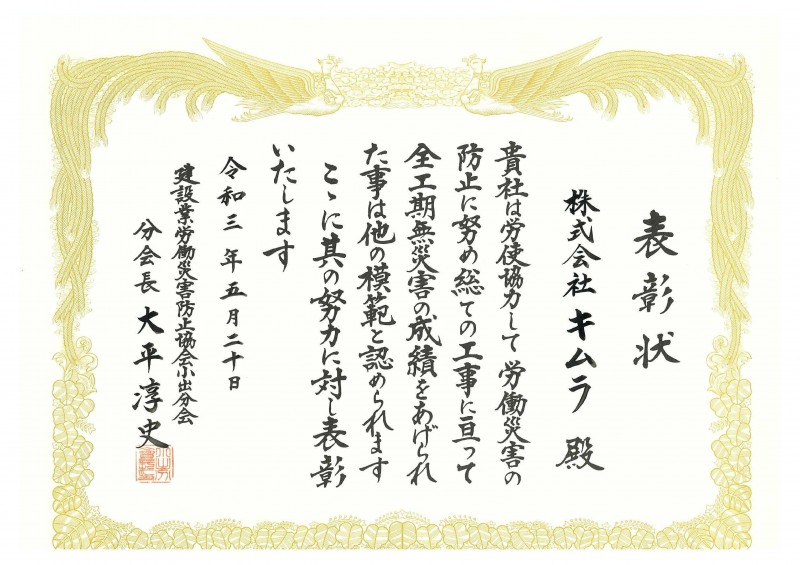 表彰状
株式会社 キムラ 殿
貴社は労使協力して 労働災害の
防止に努め総ての工事に亘って
全工期無災害の成績をあげられ
た事は他の模範と認められます
こゝに其の努力に対し表彰
いたします
令和三年五月二十日
建設業労働災害防止協会小出分会
分会長 大平淳史